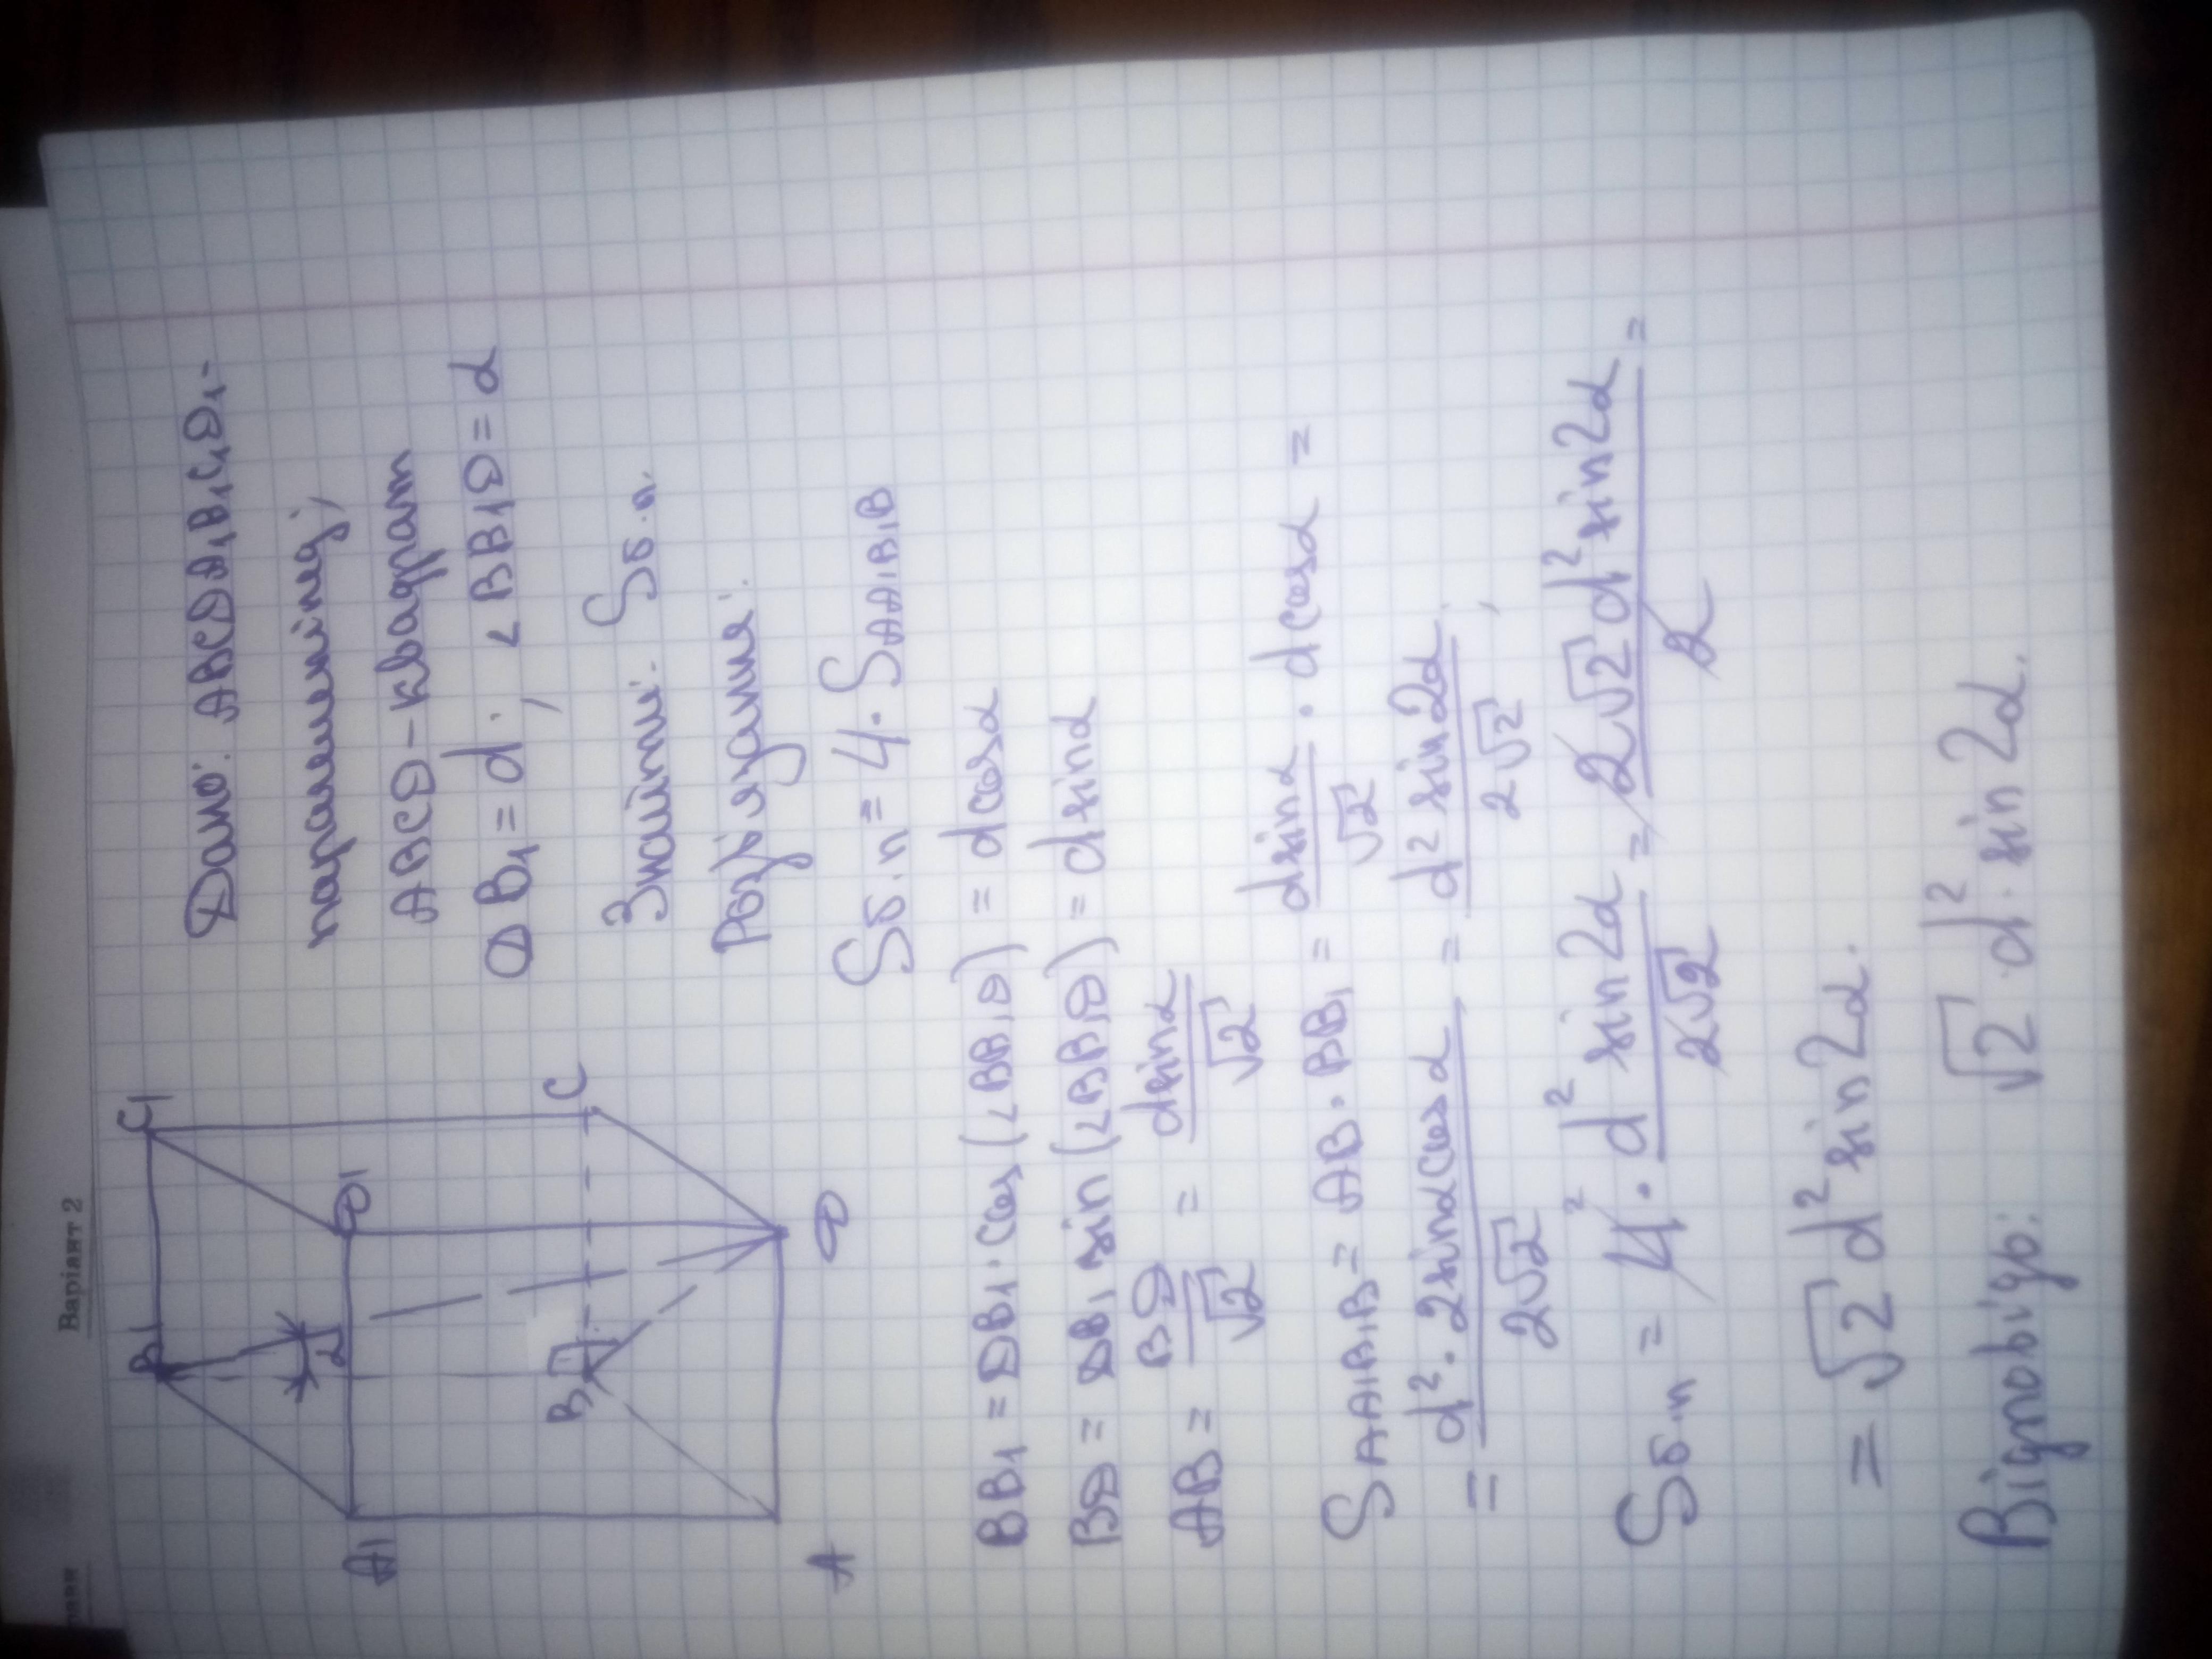 Варіант 2
B1
C1
A1
D1
α
B
C
A
D
Дано: ABCDA₁B₁C₁D₁-
паралелепіпед;
ABCD - квадрат
DB₁ = d; ∠BB₁D = α
Знайти: Sб.п.
Розв'язання:
Sб.п = 4 · SAA₁B₁B
BB₁ = DB₁ · cos(∠BB₁D) = d cosα
BD = DB₁ sin(∠BB₁D) = d sinα
AB = BD/√2 = d sinα/√2
SAA₁B₁B = AB · BB₁ = d sinα/√2 · d cosα =
= d² · 2 sinα cosα/2√2 = d² sin2α/2√2;
Sб.п = 4² · d² sin2α/2√2 = 2√2 d² sin2α/2 =
= √2 d² sin2α.
Відповідь: √2 d² · sin2α.